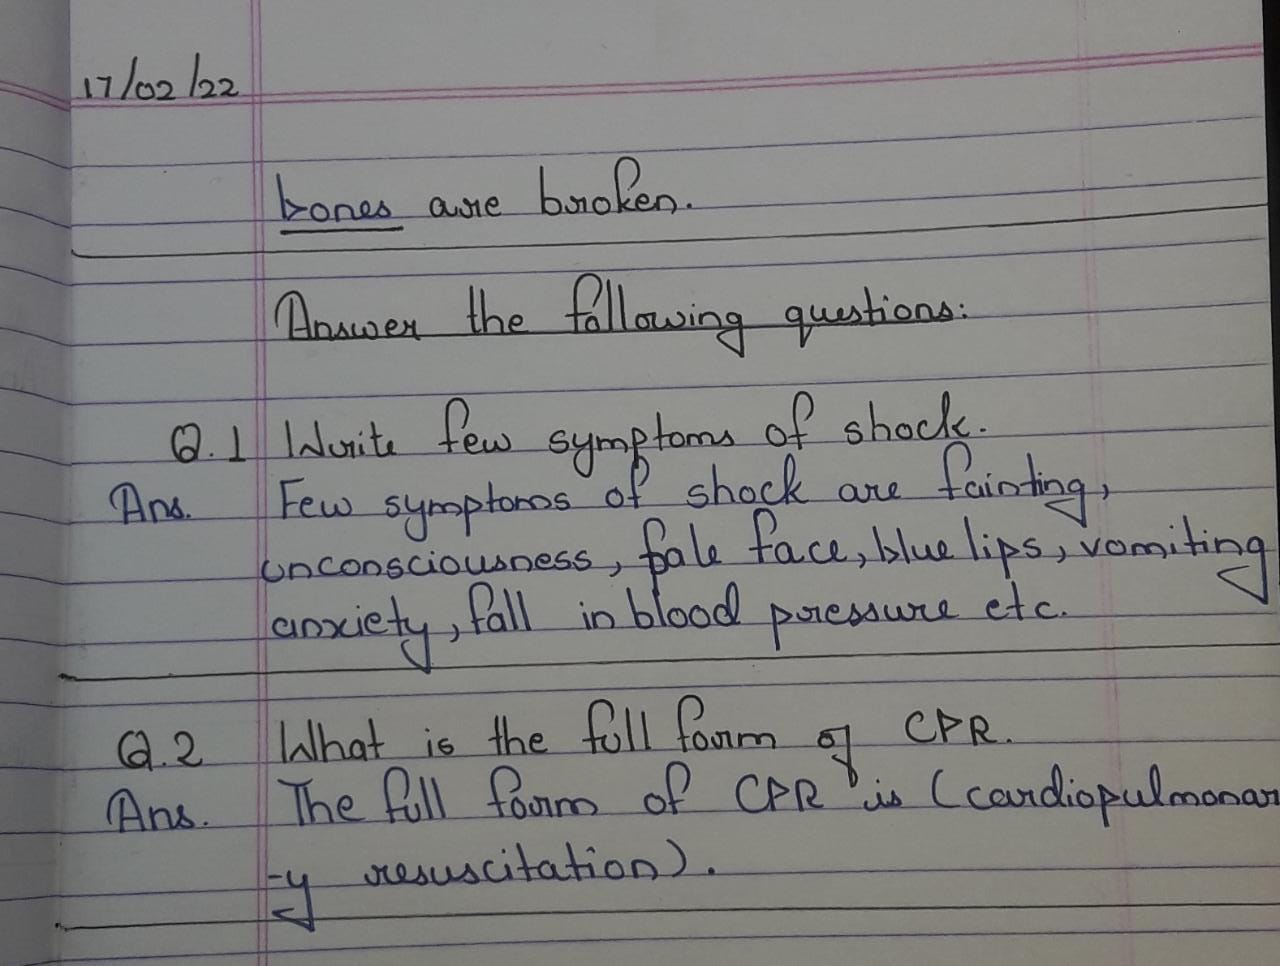 17/02/22
bones are broken.
Answer the following questions:
Q.1 Write few symptoms of shock.
Ans. Few symptoms of shock are fainting,
unconsciousness, pale face, blue lips, vomiting
anxiety, fall in blood pressure etc.
Q.2 What is the full form of CPR.
Ans. The full form of CPR is (cardiopulmonar
-y resuscitation).